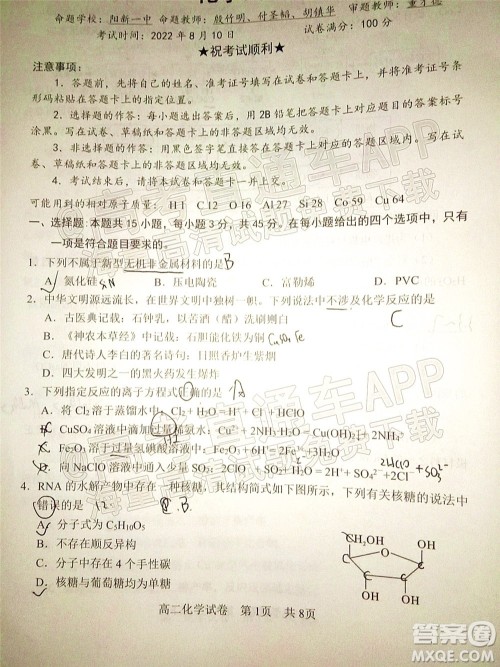 命题学校：阳新一中 命题教师：殷竹明、付圣韬、胡镇华 审题教师：
考试时间：2022年8月10日 试卷满分：100分
★祝考试顺利★
注意事项：
1．答题前，先将自己的姓名、准考证号填写在试卷和答题卡上，并将准考证号条
形码粘贴在答题卡上的指定位置。
2．选择题的作答：每小题选出答案后，用2B铅笔把答题卡上对应题目的答案标号
涂黑。写在试卷、草稿纸和答题卡上的非答题区域均无效。
3．非选择题的作答：用黑色签字笔直接答在答题卡上对应的答题区域内。写在试
卷、草稿纸和答题卡上的非答题区域均无效。
4．考试结束后，请将本试卷和答题卡一并上交。
可能用到的相对原子质量： H 1 C 12 O 16 Al 27 Si Co 59 Cu 64
一、选择题：本题共15小题，每小题3分，共45分。在每小题给出的四个选项中，只有
一项是符合题目要求的。
1．下列不属于新型无机非金属材料的是 B
A．氮化硅 B．压电陶瓷 C．富勒烯 D．PVC
2．中华文明源远流长，在世界文明中独树一帜。下列说法中不涉及化学反应的是
A．古医典记载：石钟乳，以苦酒（醋）洗刷则白 C
B．《神农本草经》中记载：石胆能化铁为铜 CuSO₄ Fe
C．唐代文人李白的著名诗句：日照香炉生紫烟
D．四大发明之一的黑火药发生爆炸
3．下列指定反应的离子方程式正确的是 A
A．将Cl₂溶于蒸馏水中：Cl₂＋H₂O⇌H⁺＋Cl⁻＋HClO
B．CuSO₄溶液中滴加过量稀氨水：Cu²⁺＋2NH₃·H₂O＝Cu(OH)₂↓＋2NH₄⁺
C．Fe₂O₃溶于过量氢碘酸溶液中：Fe₂O₃＋6H⁺＝2Fe³⁺＋3H₂O
D．向NaClO溶液中通入少量SO₂：SO₂＋H₂O＋2ClO⁻＝ 2HClO＋SO₃²⁻
4．RNA的水解产物中存在一种核糖，其结构简式如下图所示，下列有关核糖的说法中
错误的是 B
A．分子式为C₅H₁₀O₅
B．不存在顺反异构
C．分子中存在4个手性碳
D．核糖与葡萄糖均为单糖
CH₂OH O OH
OH OH
高二化学试卷 第1页 共8页
海量高清试题免费下载
早知道通车APP
答案圈
MXQE.COM